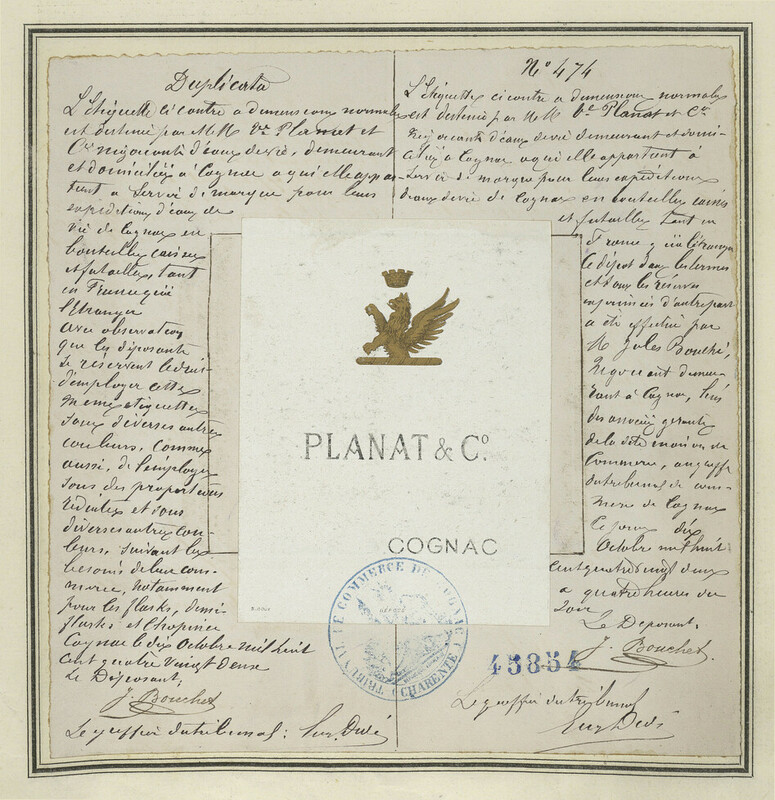 Duplicata
L'étiquette ci contre a dimensions normales
est destiné par MM Vve Planat et
Cie négociants d'eaux de vie, demeurant
et domiciliés à Cognac a qui elle appar-
tient a servir de marque pour leurs
expéditions d'eaux de
vie de Cognac en
bouteilles caisses
et futailles, tant
en France qu'à
l'Etranger
avec observation
que les déposants
se réservent le droit
d'employer cette
meme etiquette
sous diverses autres
couleurs, comme
aussi, de l'employer
sous des proportions
réduites et sous
diverses autres cou-
leurs, suivant les
besoins de leur com-
merce, notamment
pour les flasks, demi-
flasks et Chopines
Cognac le dix Octobre mil huit
cent quatre vingt deux
Le Déposant,
J. Bouchet
Le greffier du tribunal :
No 474
L'étiquette ci contre a dimensions normales
est destiné par MM Vve Planat et Cie
négociants d'eaux de vie demeurant et domi-
ciliés a Cognac a qui elle appartient à
servir de marque pour leurs expéditions
d'eaux de vie de Cognac en bouteilles caisses
et futailles tant en
France qu'à l'étranger
Le dépôt dans les termes
et sous les réserves
exprimées d'autre part
a été effectué par
M Jules Bouchet,
négociant demeu-
rant à Cognac, l'un
des associés gérants
de la dite maison de
Commerce, au greffe
du tribunal de com-
merce de Cognac
Ce jour dix
Octobre mil huit
cent quatre vingt deux
a quatre heures du
soir
Le Déposant,
J. Bouchet
Le greffier du tribunal
PLANAT & Co.
COGNAC
TRIBUNAL DE COMMERCE DE COGNAC
CHARENTE
45854